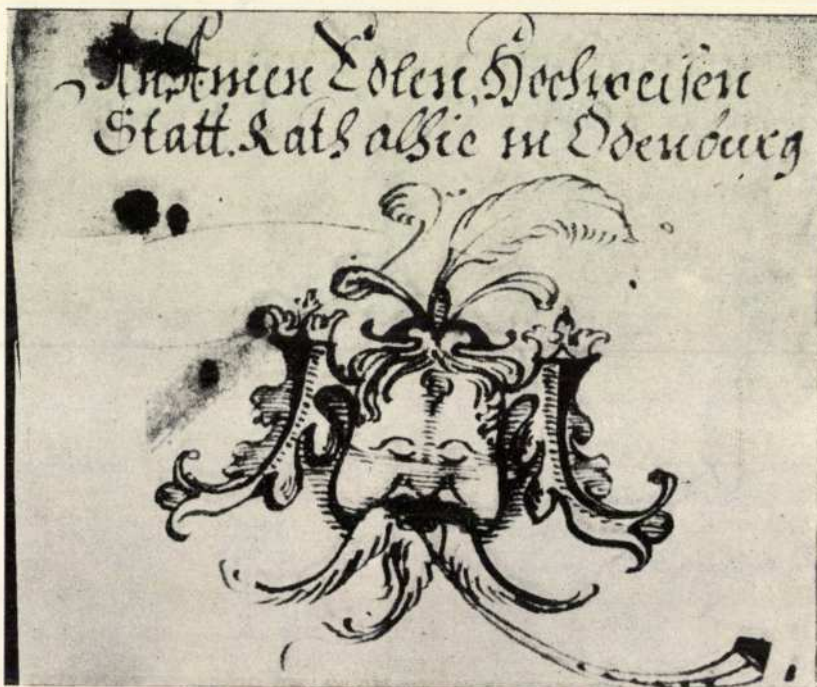 An Einen Edlen, Hochweisen
Statt. Rath alhie in Ödenburg